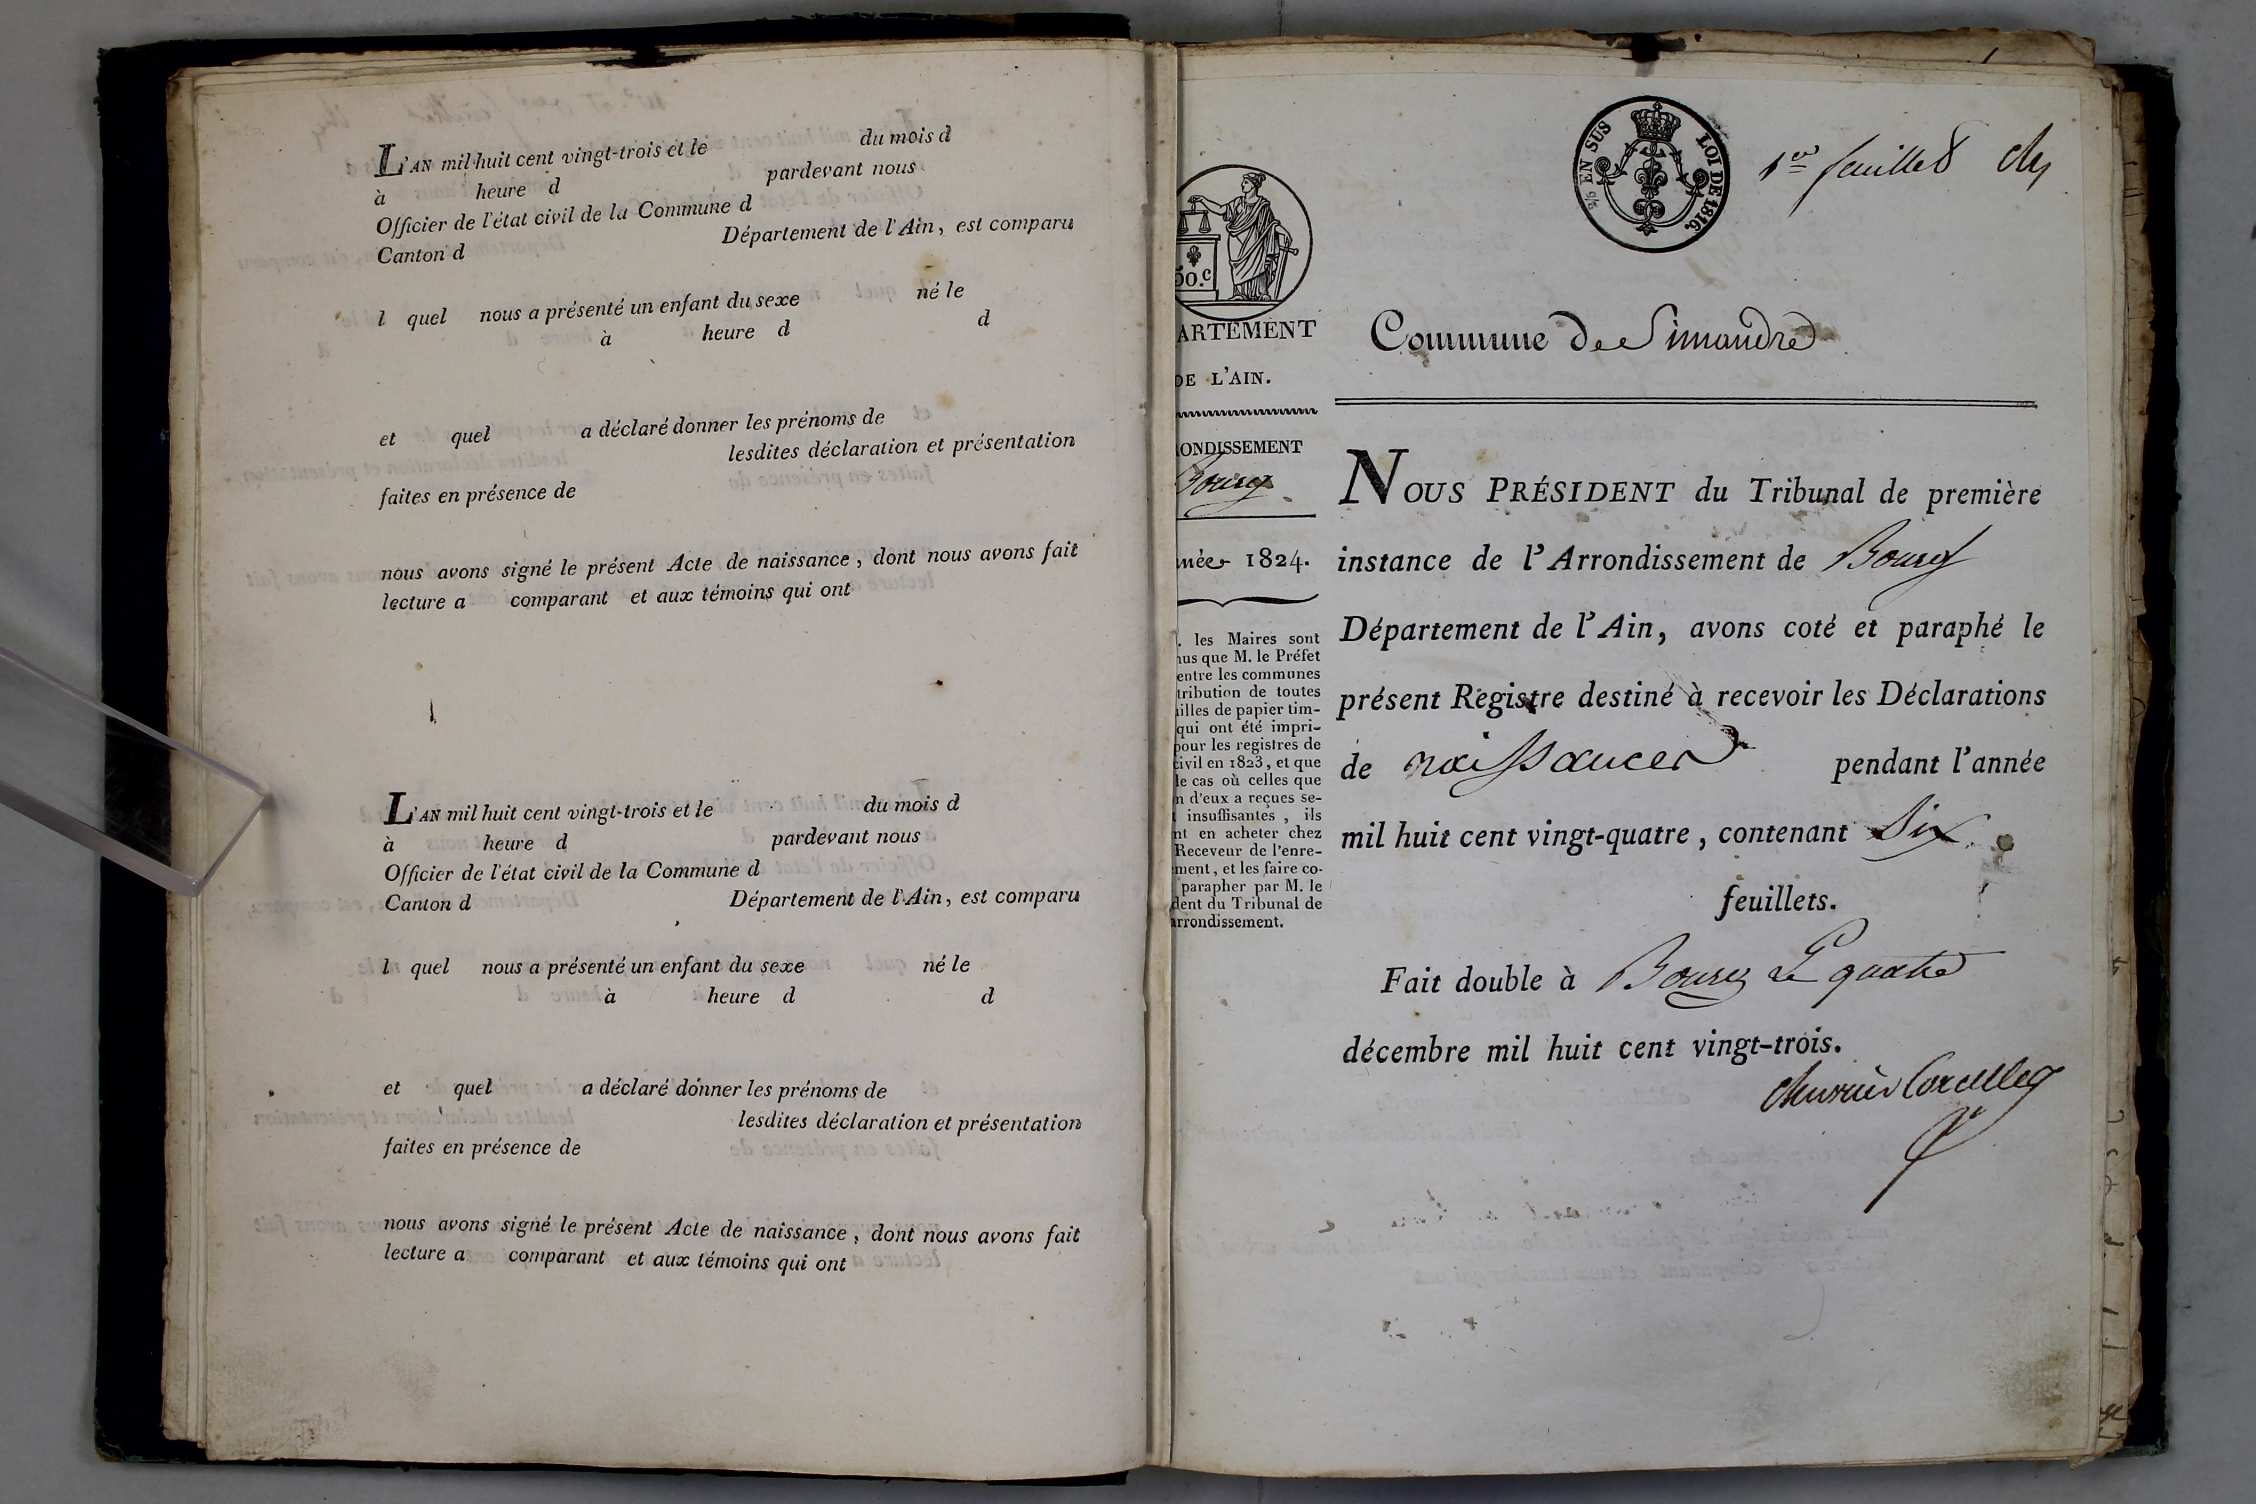 L'AN mil huit cent vingt-trois et le du mois d
à heure d pardevant nous
Officier de l'état civil de la Commune d
Canton d Département de l'Ain, est comparu
l quel nous a présenté un enfant du sexe né le
à heure d d
et quel a déclaré donner les prénoms de
lesdites déclaration et présentation
faites en présence de
nous avons signé le présent Acte de naissance, dont nous avons fait
lecture a comparant et aux témoins qui ont
L'AN mil huit cent vingt-trois et le du mois d
à heure d pardevant nous
Officier de l'état civil de la Commune d
Canton d Département de l'Ain, est comparu
l quel nous a présenté un enfant du sexe né le
à heure d d
et quel a déclaré donner les prénoms de
lesdites déclaration et présentation
faites en présence de
nous avons signé le présent Acte de naissance, dont nous avons fait
lecture a comparant et aux témoins qui ont
50.c
ARTEMENT
DE L'AIN.
ONDISSEMENT
Bourg
née 1824.
les Maires sont
us que M. le Préfet
entre les communes
tribution de toutes
illes de papier tim-
qui ont été impri-
pour les registres de
civil en 1823, et que
le cas où celles que
n d'eux a reçues se-
insuffisantes, ils
nt en acheter chez
Receveur de l'enre-
ment, et les faire co-
parapher par M. le
dent du Tribunal de
arrondissement.
EN SUS LOI DE 1816.
1er feuillet
Commune de Simandre
NOUS PRÉSIDENT du Tribunal de première
instance de l'Arrondissement de Bourg
Département de l'Ain, avons coté et paraphé le
présent Registre destiné à recevoir les Déclarations
de naissances pendant l'année
mil huit cent vingt-quatre, contenant Six
feuillets.
Fait double à Bourg Le quatre
décembre mil huit cent vingt-trois.